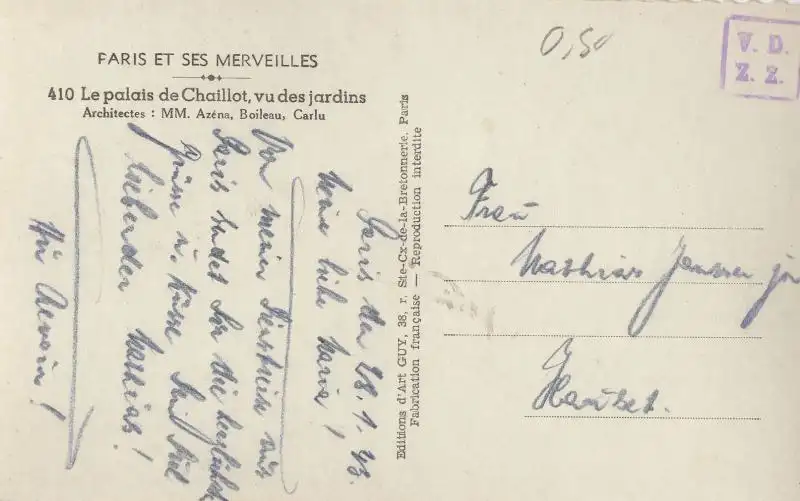 PARIS ET SES MERVEILLES
410 Le palais de Chaillot, vu des jardins
Architectes : MM. Azéna, Boileau, Carlu
Paris den 28.1.43.
Meine liebe Maria!
Von meiner Dienstreise aus
Paris sendet Dir die herzlichst
Grüsse u. Küsse Dein Dich
liebender Mathias!
Auf
Editions d'Art GUY, 38, r. Ste-Cx-de-la-Bretonnerie, Paris
Fabrication française — Reproduction interdite
0,50
V. D.
Z. Z.
Frau
Mathias Janssen jr
Hauset.